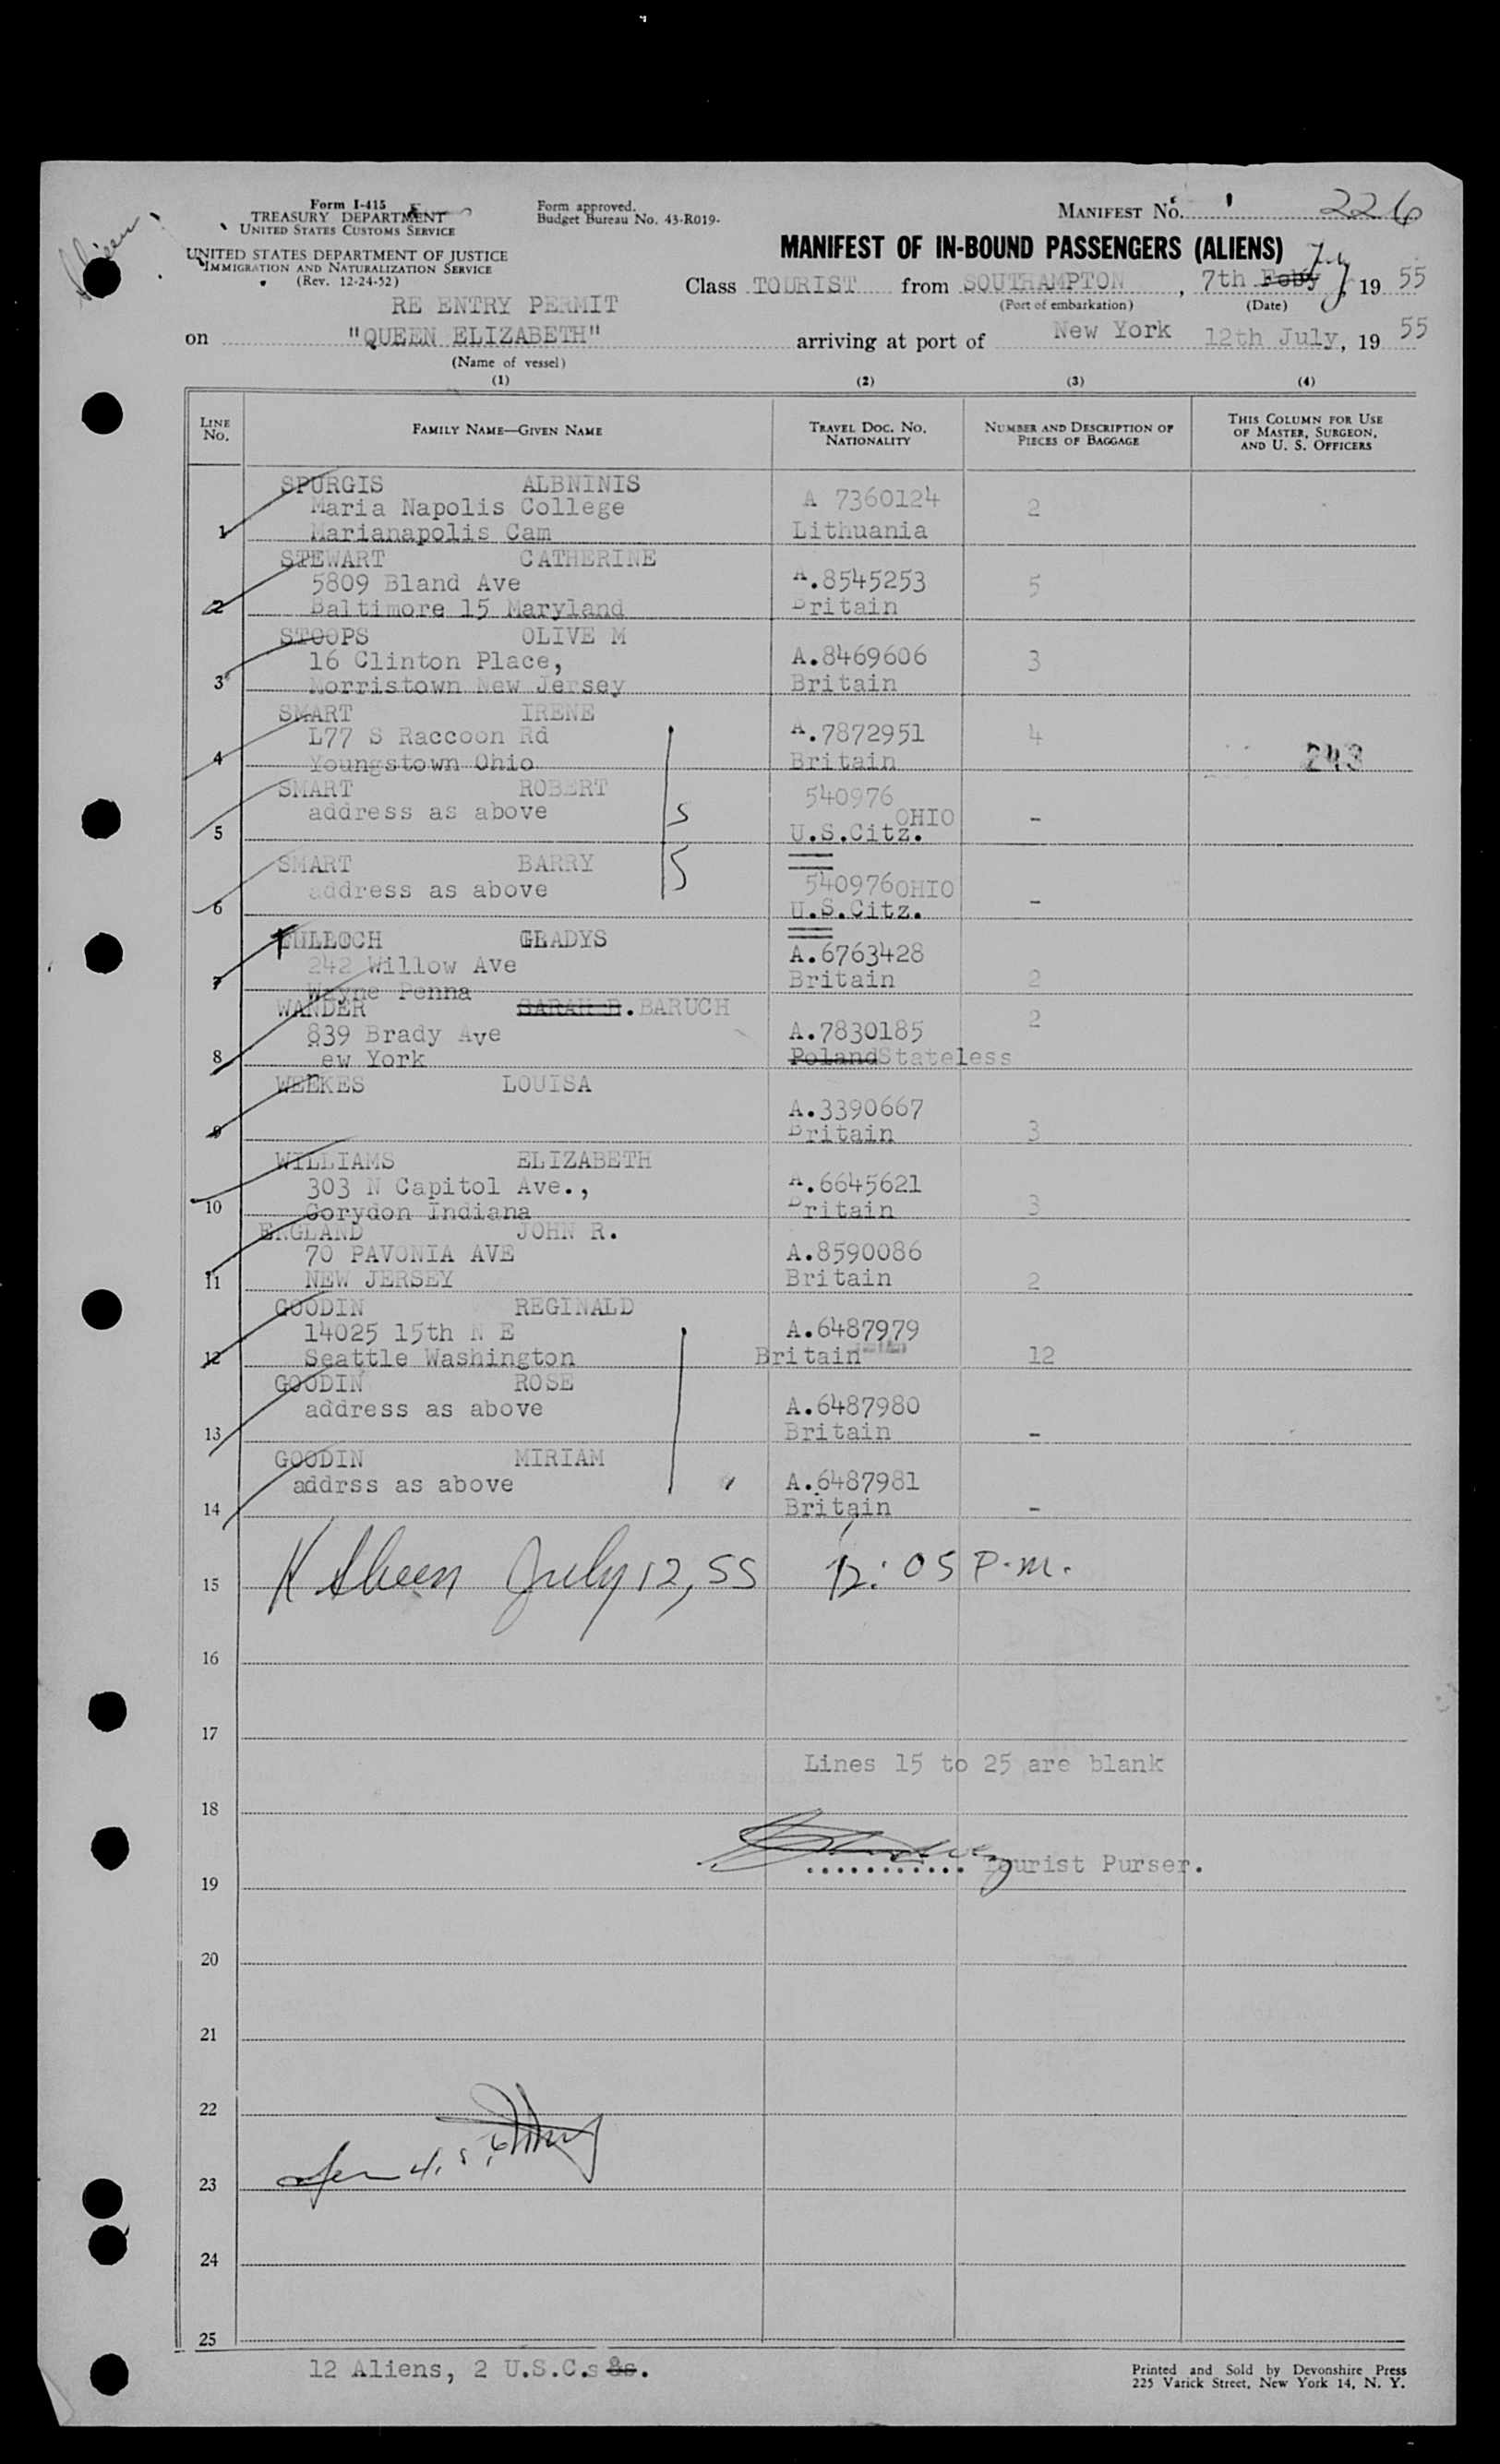 Form I-415
TREASURY DEPARTMENT
UNITED STATES CUSTOMS SERVICE
UNITED STATES DEPARTMENT OF JUSTICE
IMMIGRATION AND NATURALIZATION SERVICE
(Rev. 12-24-52)
Form approved.
Budget Bureau No. 43-R019-
MANIFEST No. 226
MANIFEST OF IN-BOUND PASSENGERS (ALIENS)
Class TOURIST from SOUTHAMPTON, 7th July, 19 55
(Port of embarkation) (Date)
RE ENTRY PERMIT
on "QUEEN ELIZABETH" arriving at port of New York 12th July, 19 55
(Name of vessel)
(1) (2) (3) (4)
LINE No. FAMILY NAME—GIVEN NAME TRAVEL DOC. NO. NATIONALITY NUMBER AND DESCRIPTION OF PIECES OF BAGGAGE THIS COLUMN FOR USE OF MASTER, SURGEON, AND U. S. OFFICERS
SPURGIS ALBNINIS
Maria Napolis College A 7360124 2
1 Marianapolis Cam Lithuania
STEWART CATHERINE
5809 Bland Ave A.8545253 5
2 Baltimore 15 Maryland Britain
STOOPS OLIVE M
16 Clinton Place, A.8469606 3
3 Morristown New Jersey Britain
SMART IRENE
L77 S Raccoon Rd A.7872951 4
4 Youngstown Ohio Britain 243
SMART ROBERT 540976
address as above S OHIO -
5 U.S.Citz.
SMART BARRY S
address as above 540976OHIO -
6 U.S.Citz.
TULLOCH GLADYS A.6763428
242 Willow Ave
7 Wayne Penna Britain 2
WANDER SARAH B. BARUCH 2
839 Brady Ave A.7830185
8 ew York Poland Stateless
WEEKES LOUISA
A.3390667
9 Britain 3
WILLIAMS ELIZABETH
303 N Capitol Ave., A.6645621
10 Corydon Indiana Britain 3
ENGLAND JOHN R.
70 PAVONIA AVE A.8590086
11 NEW JERSEY Britain 2
GOODIN REGINALD
14025 15th N E A.6487979
12 Seattle Washington Britain 12
GOODIN ROSE
address as above A.6487980
13 Britain -
GOODIN MIRIAM
addrss as above A.6487981
14 Britain -
15 K Sheen July 12, 55 12:05 P.M.
16
17
Lines 15 to 25 are blank
18
........... Tourist Purser.
19
20
21
22
23
24
25
12 Aliens, 2 U.S.C.s &s.
Printed and Sold by Devonshire Press
225 Varick Street, New York 14, N. Y.